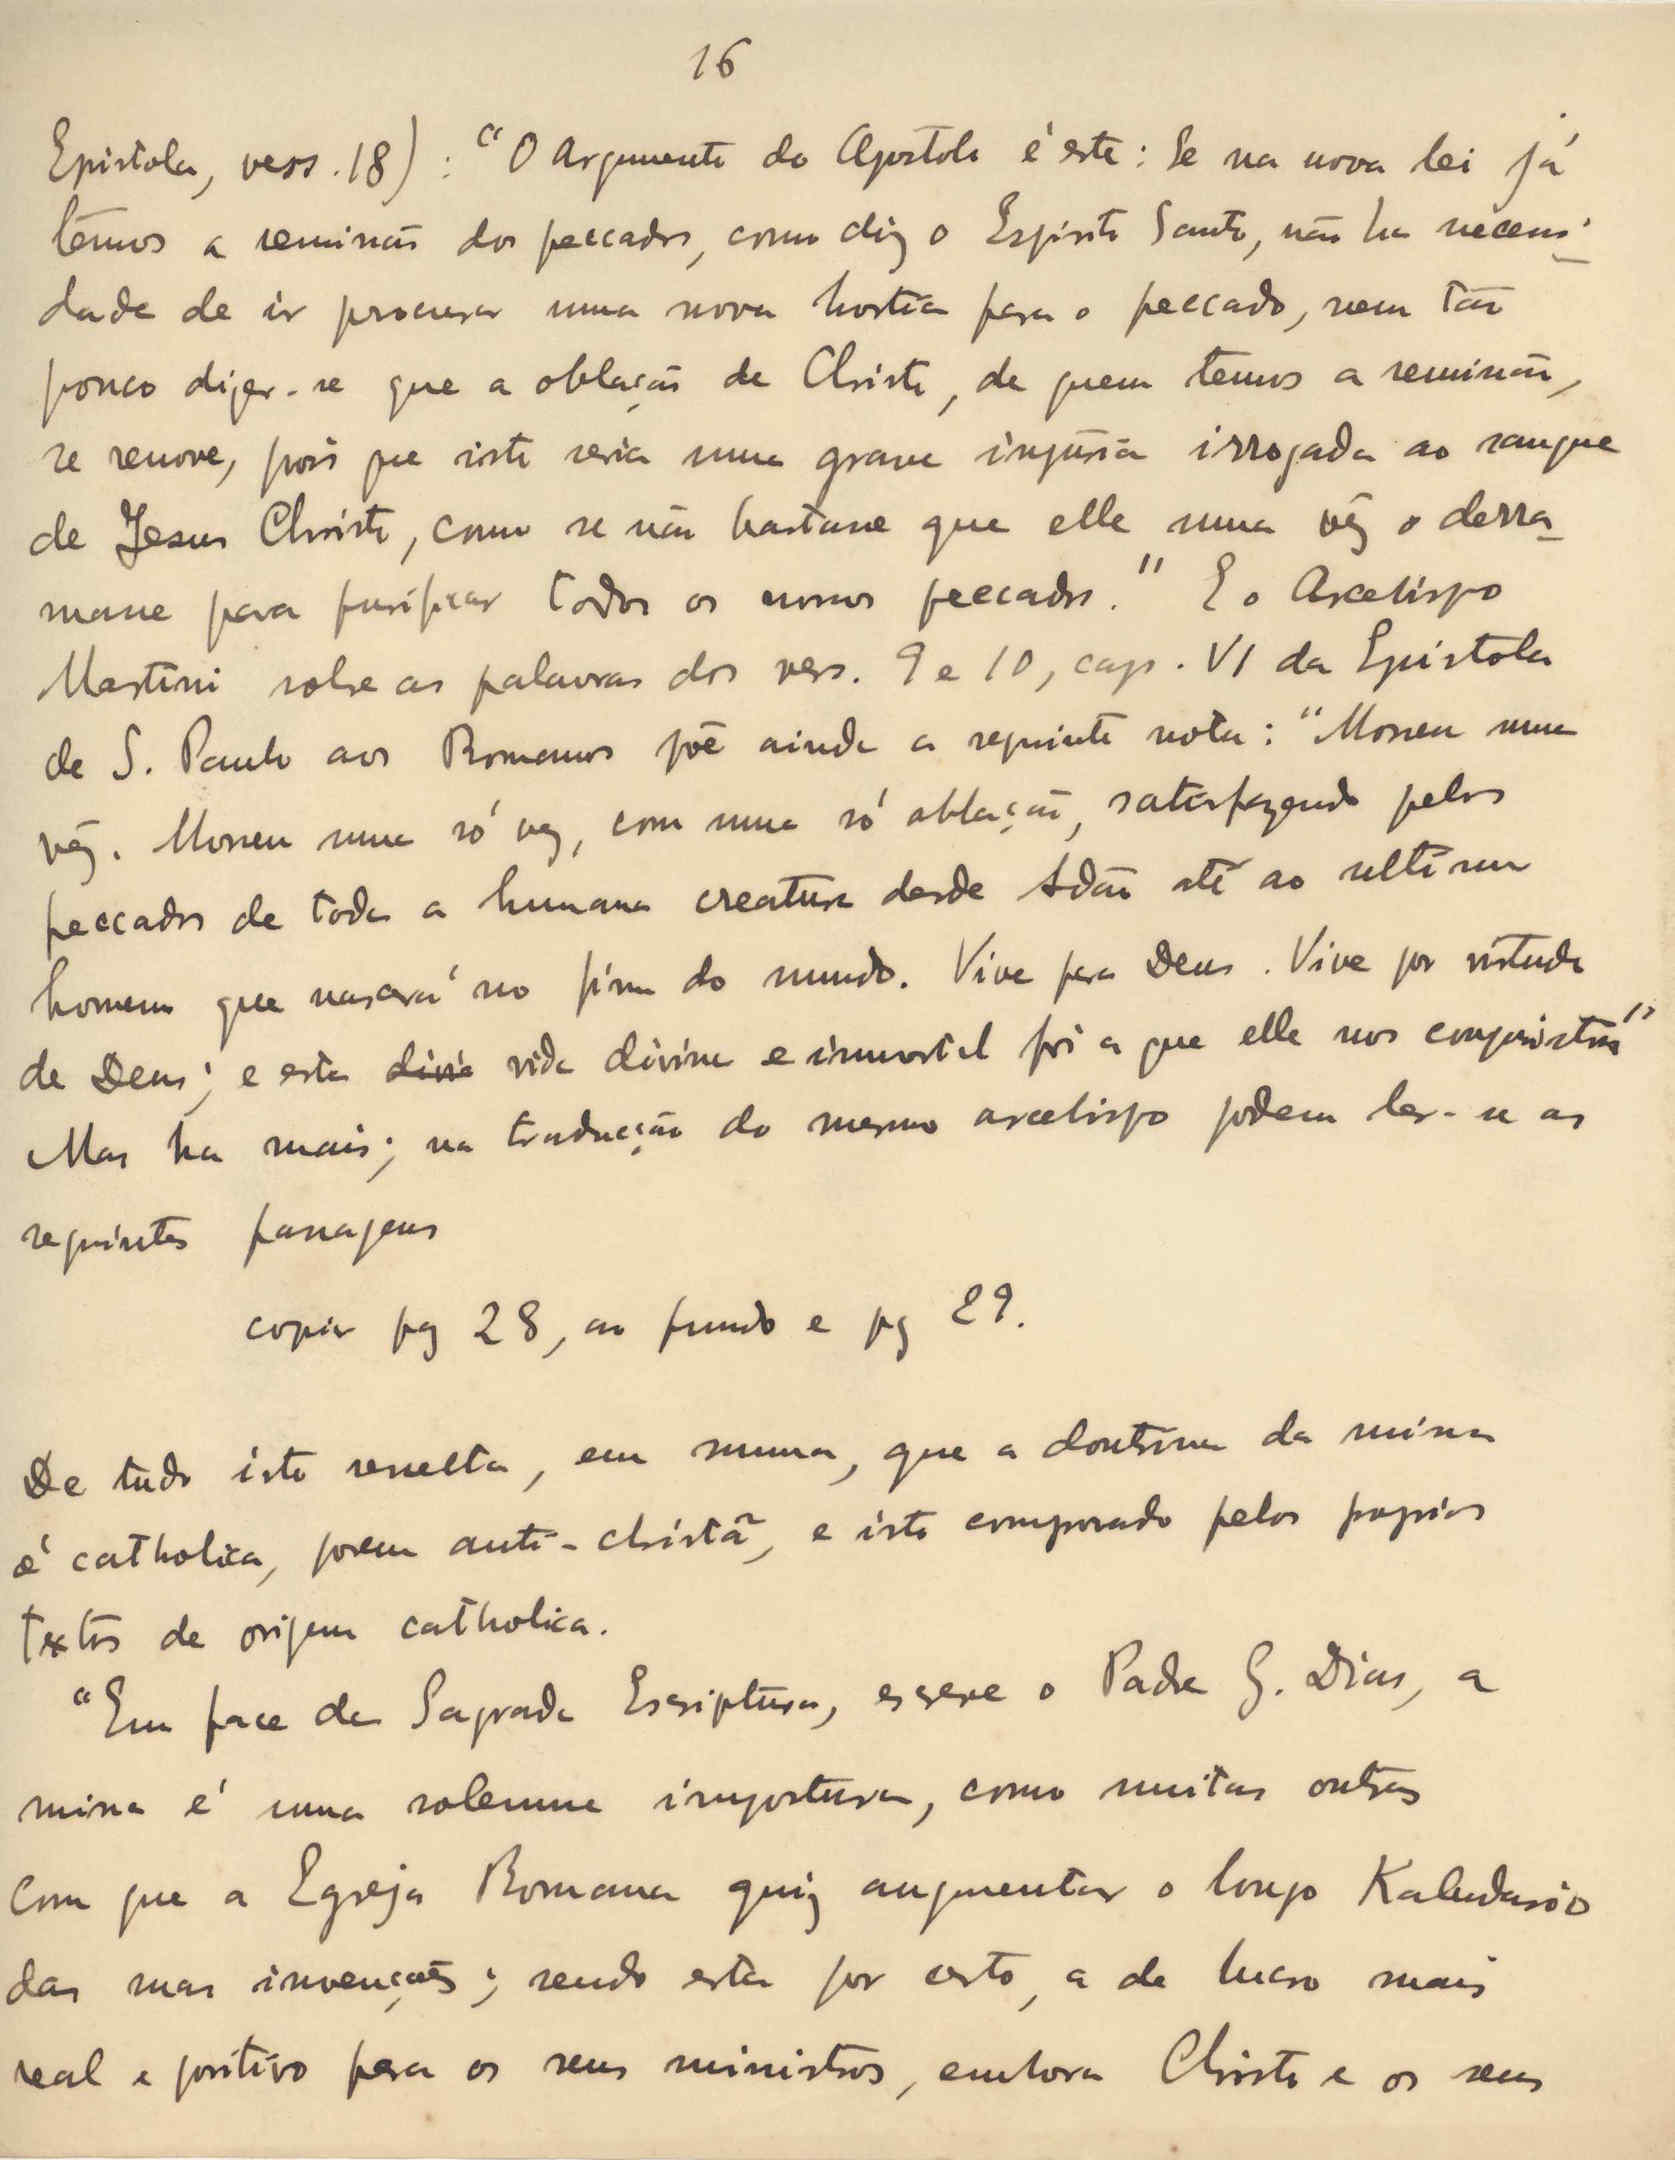 16
Epistola, vers. 18) : "O Argumento do Apostolo é este: Se na nova lei já
têmos a remissão dos peccados, como diz o Espirito Santo, não ha necessi-
dade de ir procurar uma nova hostia para o peccado, nem tão
pouco dizer-se que a oblação de Christo, de quem temos a remissão,
se renove, pois que isto seria uma grave injuria irrogada ao sangue
de Jesus Christo, como se não bastasse que elle uma vêz o derra-
masse para purificar todos os nossos peccados." E o Arcebispo
Martini sobre as palavras dos vers. 9 e 10, cap. VI da Epistola
de S. Paulo aos Romanos põe ainda a seguinte nota: "Morreu uma
vêz. Morreu uma só vez, com uma só oblação, satisfazendo pelos
peccados de toda a humana creatura desde Adão até ao ultimo
homem que nascerá no fim do mundo. Vive para Deus. Vive por virtude
de Deus; e esta divi vida divina e immortal foi a que elle nos conquistou"
Mas ha mais; na traducção do mesmo arcebispo podem ler-se as
seguintes passagens
copiar pg 28, ao fundo e pg 29.
De tudo isto resulta, em summa, que a doutrina da missa
é catholica, porem anti-christã, e isto comprovado pelos proprios
textos de origem catholica.
"Em face da Sagrada Escriptura, escreve o Padre G. Dias, a
missa é uma solemne impostura, como muitas outras
com que a Egreja Romana quiz augmentar o longo Kalendario
das suas invenções; sendo esta por certo, a de lucro mais
real e positivo para os seus ministros, embora Christo e os seus